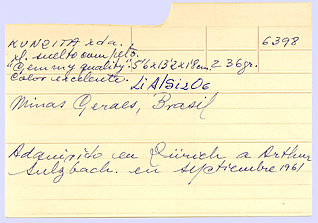 KUNZITA rda. 6398
xl. suelto completo.
"Gemmy quality". 5'6x13'2x1'8cm. 236gr.
Color excelente. LiAlSi2O6
Minas Geraes, Brasil
Adquirido en Zürich a Arthur
Sulzbach. en septiembre 1961